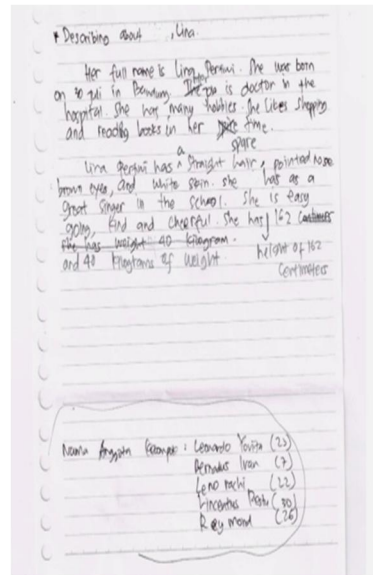 * Describing about , Lina.
Her full name is Lina Pertiwi. She was born
on 30 juli in Bandung. She is doctor in the
hospital. She has many hobbies. She likes shopping
and reading books in her spare time.
Lina Pertiwi has a straight hair, pointed nose
brown eyes, and white skin. she has as a
great singer in the school. She is easy
going, kind and cheerful. She has 162 Centimeters
she has weight 40 kilogram. height of 162
and 40 kilograms of weight. Centimeters
Nama Anggota Kelompok : Leonardo Yovita (23)
Bernadus Ivan (7)
Leno rachi (22)
Vincentius Pestu (30)
Reymond (26)